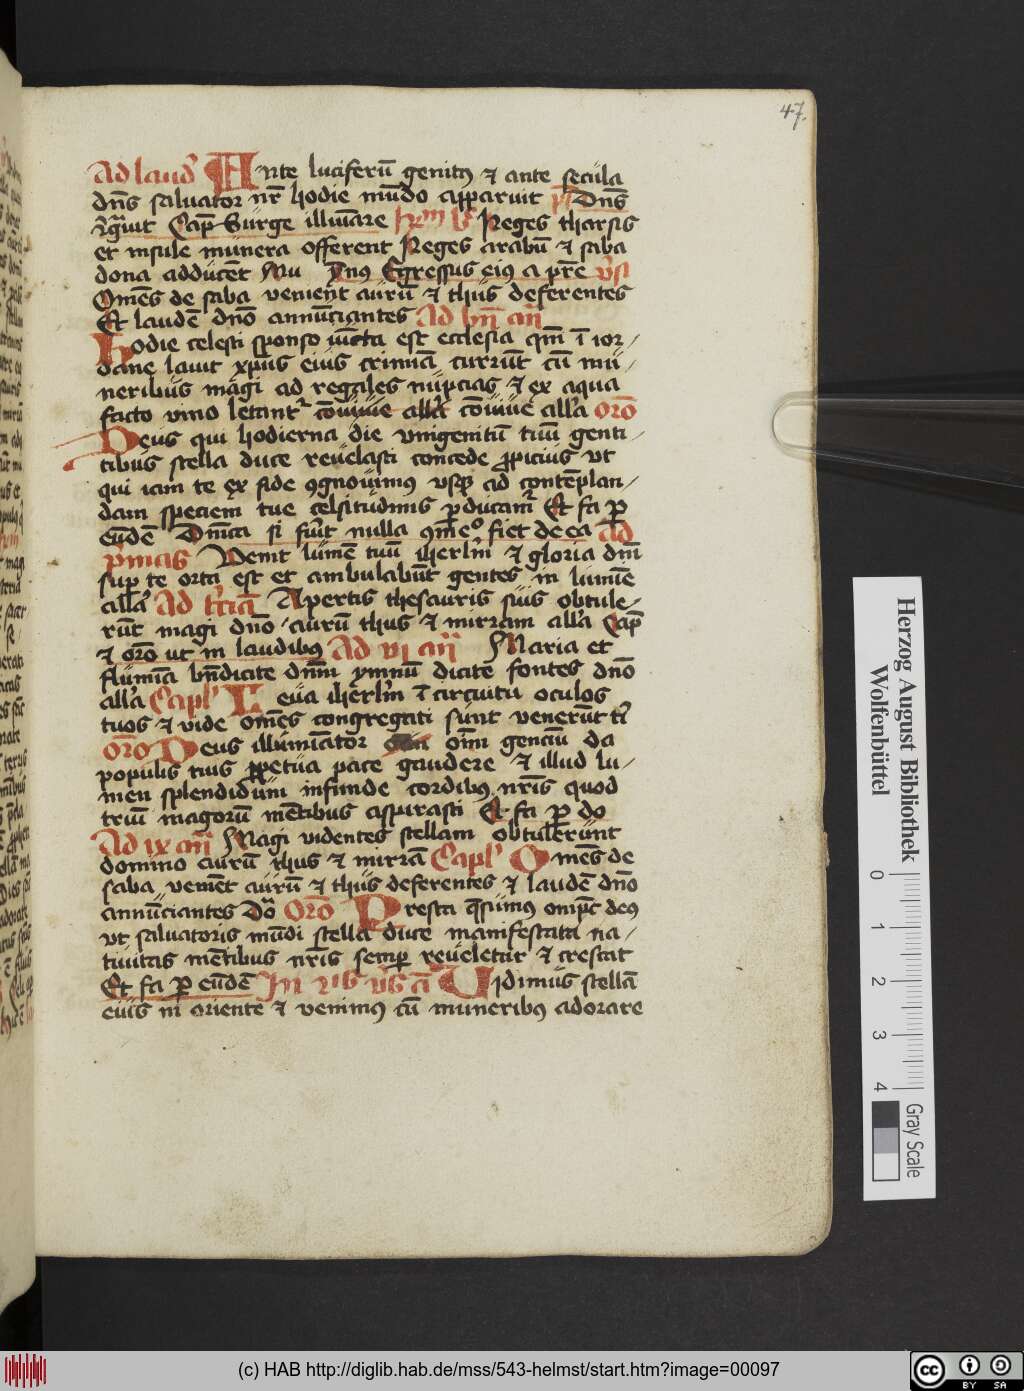 47.
Ad laud' Ante luciferū genitꝰ ⁊ ante secula
dn̄s saluator nr̄ hodie mūdo apparuit pͥ Dn̄s
r̄gauit Cap̄ Surge illuīare Rͫ Reges tharsis
et insule munera offerent Reges arabū ⁊ saba
dona adducēt Egressus eiꝰ a pr̄e v̄sꝰ
Om̄es de saba venient aurū ⁊ thus deferentes
Et laudē dn̄o annūciantes Ad bn̄ an̄
Hodie celesti sponso iūcta est ecclesia qm̄ ī ior-
dane lauit xpūs eius crimīa currūt cū mu-
neribus magi ad regales nupcias ⁊ ex aqua
facto vino letant' alla orō
Deus qui hodierna die vnigenitū tuū genti-
tibus stella duce reuelasti concede ꝓpicius vt
qui iam te ex fide ꝯgnouimꝰ vsqꝫ ad contēplan-
dam speciem tue celsitudinis ꝓducam̄ Et fa ꝑ
eūdē Dn̄ica si fūit nulla fiet de ea ad
p̄mas Venit lumē tuū iherl'm ⁊ gloria dn̄i
suꝑ te orta est et ambulabūt gentes in lumīe
all'a Ad t'ciā Apertis thesauris suis obtule-
rūt magi dn̄o aurū thus ⁊ mirram all'a Cap̄
⁊ orō ut in laudibꝰ Ad vj an̄ Maria et
flumīa bn̄dicite dn̄m ymnū dicite fontes dn̄o
all'a Capl' Leua iherl'm ī circuitu oculos
tuos ⁊ vide om̄es congregati sunt venerūt t'
orō Deus illumīator om̄ genciū da
populis tuis ꝑpetua pace gaudere ⁊ illud lu-
men splendidum infunde cordibꝰ nr̄is quod
triū magorū mētibus aspirasti Et fa ꝑ do
Ad ix an̄ Magi videntes stellam obtulerunt
domino aurū thus ⁊ mirrā Capl' Om̄es de
saba veniēt aurū ⁊ thus deferentes ⁊ laudē dn̄o
annūciantes Orō Presta q̄sumus omp̄c deꝰ
vt saluatoris mūdi stella duce manifestata na-
tiuitas mētibus nr̄is semꝑ reueletur ⁊ crescat
Et fa ꝑ eūdē In Vidimus stellā
eius in oriente ⁊ venimꝰ cū muneribꝰ adorare
Herzog August Bibliothek
Wolfenbüttel
0
1
2
3
4
Gray Scale
(c) HAB http://diglib.hab.de/mss/543-helmst/start.htm?image=00097
cc BY SA